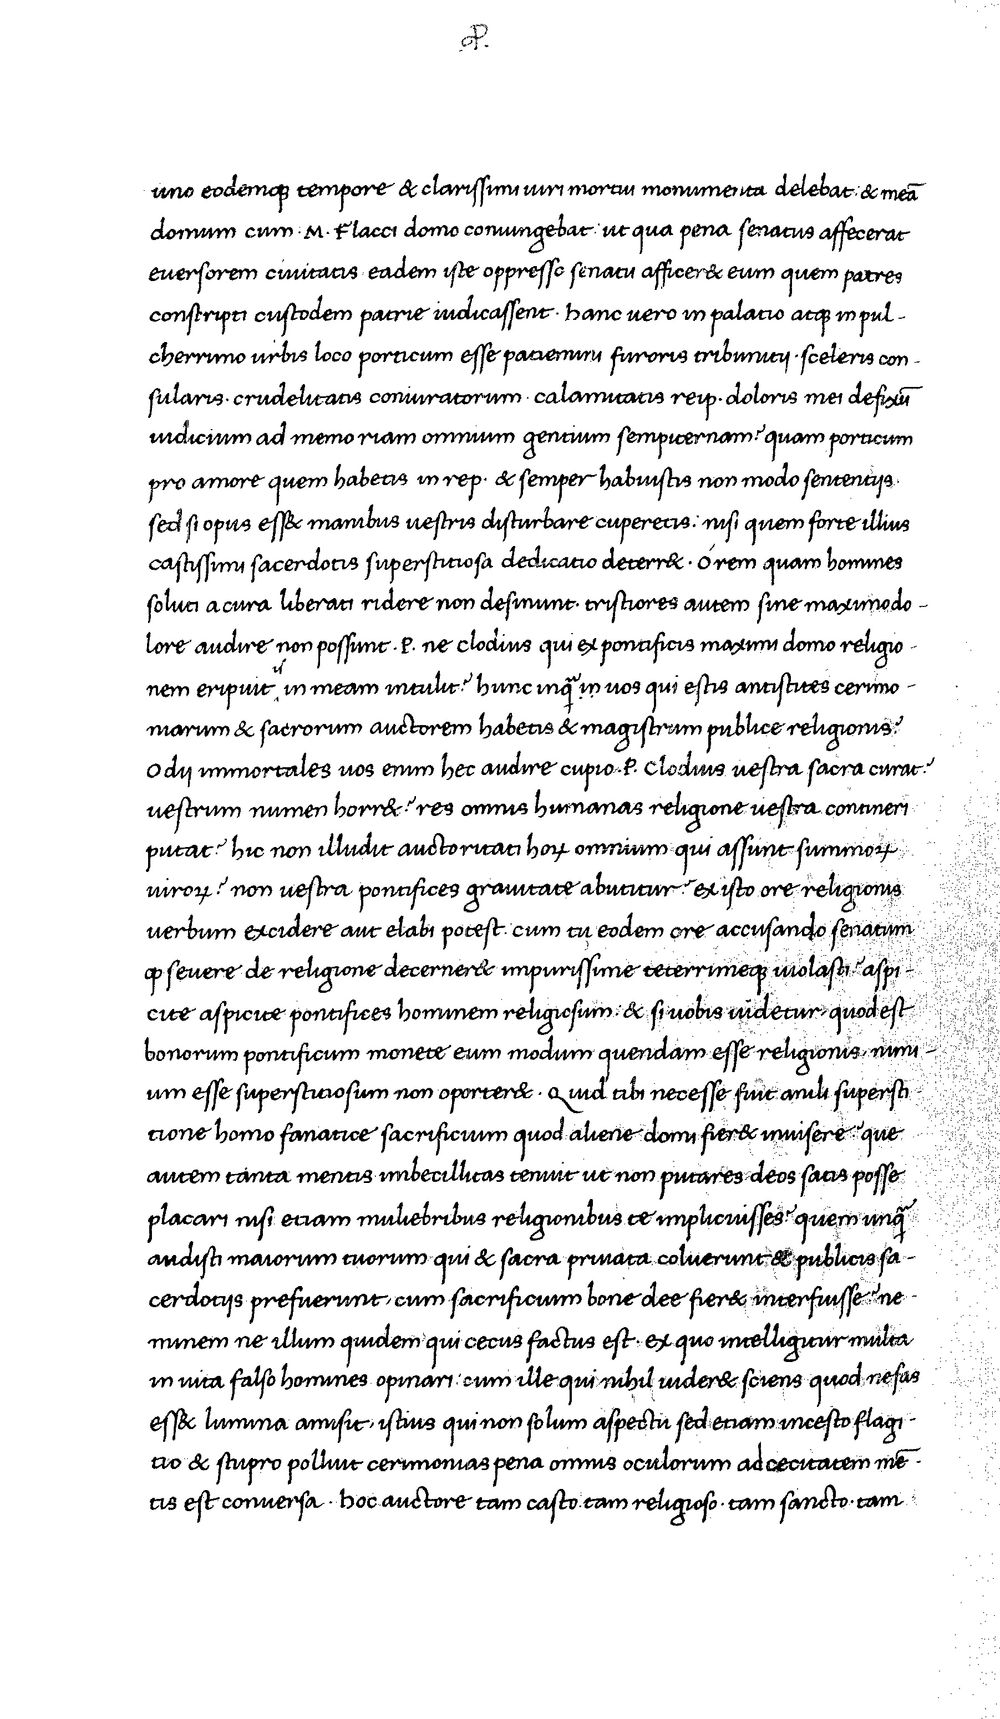 P.
uno eodemqꝫ tempore & clarissimi uiri mortui monumenta delebat: & meā
domum cum · M · Flacci domo coniungebat: ut qua pena senatus affecerat
euersorem ciuitatis eadem iste oppresso senatu afficer& eum quem patres
conscripti custodem patrie iudicassent · hanc uero in palatio atqꝫ in pul-
cherrimo urbis loco porticum esse patiemini furoris tribunitij · sceleris con-
sularis · crudelitatis coniuratorum · calamitatis reip · doloris mei defixū
iudicium ad memoriam omnium gentium sempiternam? quam porticum
pro amore quem habetis in rep · & semper habuistis non modo sententijs
sed si opus ess& manibus uestris disturbare cuperetis: nisi quem forte illius
castissimi sacerdotis superstitiosa dedicatio deterr& · Ó rem quam homines
soluti a cura liberati ridere non desinunt · tristiores autem sine maximo do-
lore audire non possunt · P. ne Clodius qui ex pontificis maximi domo religio-
nem eripuit is in meam intulit? hunc inq̄ in uos qui estis antistites cerimo-
niarum & sacrorum auctorem habetis & magistrum publice religionis?
O dij immortales uos enim hec audire cupio · P. Clodius uestra sacra curat?
uestrum numen horr&? res omnis humanas religione uestra contineri
putat? hic non illudit auctoritati hoꝝ omnium qui assunt summoꝝ
uiroꝝ? non uestra pontifices grauitate abutitur? ex isto ore religionis
uerbum excidere aut elabi potest · cum tu eodem ore accusando senatum
qꝫ seuere de religione decerner& impurissime teterrimeqꝫ uiolasti? aspi-
cite aspicite pontifices hominem religiosum: & si uobis uidetur, quod est
bonorum pontificum monete eum modum quendam esse religionis, nimi-
um esse superstitiosum non oporter& · Quid tibi necesse fuit anili supersti-
tione homo fanatice sacrificium quod aliene domi fier& inuisere? que
autem tanta mentis imbecillitas tenuit ut non putares deos satis posse
placari nisi etiam muliebribus religionibus te implicuisses? quem unq̄
audisti maiorum tuorum qui & sacra priuata coluerunt & publicis sa-
cerdotijs prefuerunt, cum sacrificium bone dee fier& interfuisse? ne-
minem ne illum quidem qui cecus factus est · ex quo intelligitur multa
in uita falso homines opinari: cum ille qui nihil uider& sciens quod nefas
ess& lumina amisit, istius qui non solum aspectu sed etiam incesto flagi-
tio & stupro polluit cerimonias pena omnis oculorum ad cecitatem mē-
tis est conuersa · hoc auctore tam casto tam religioso · tam sancto · tam